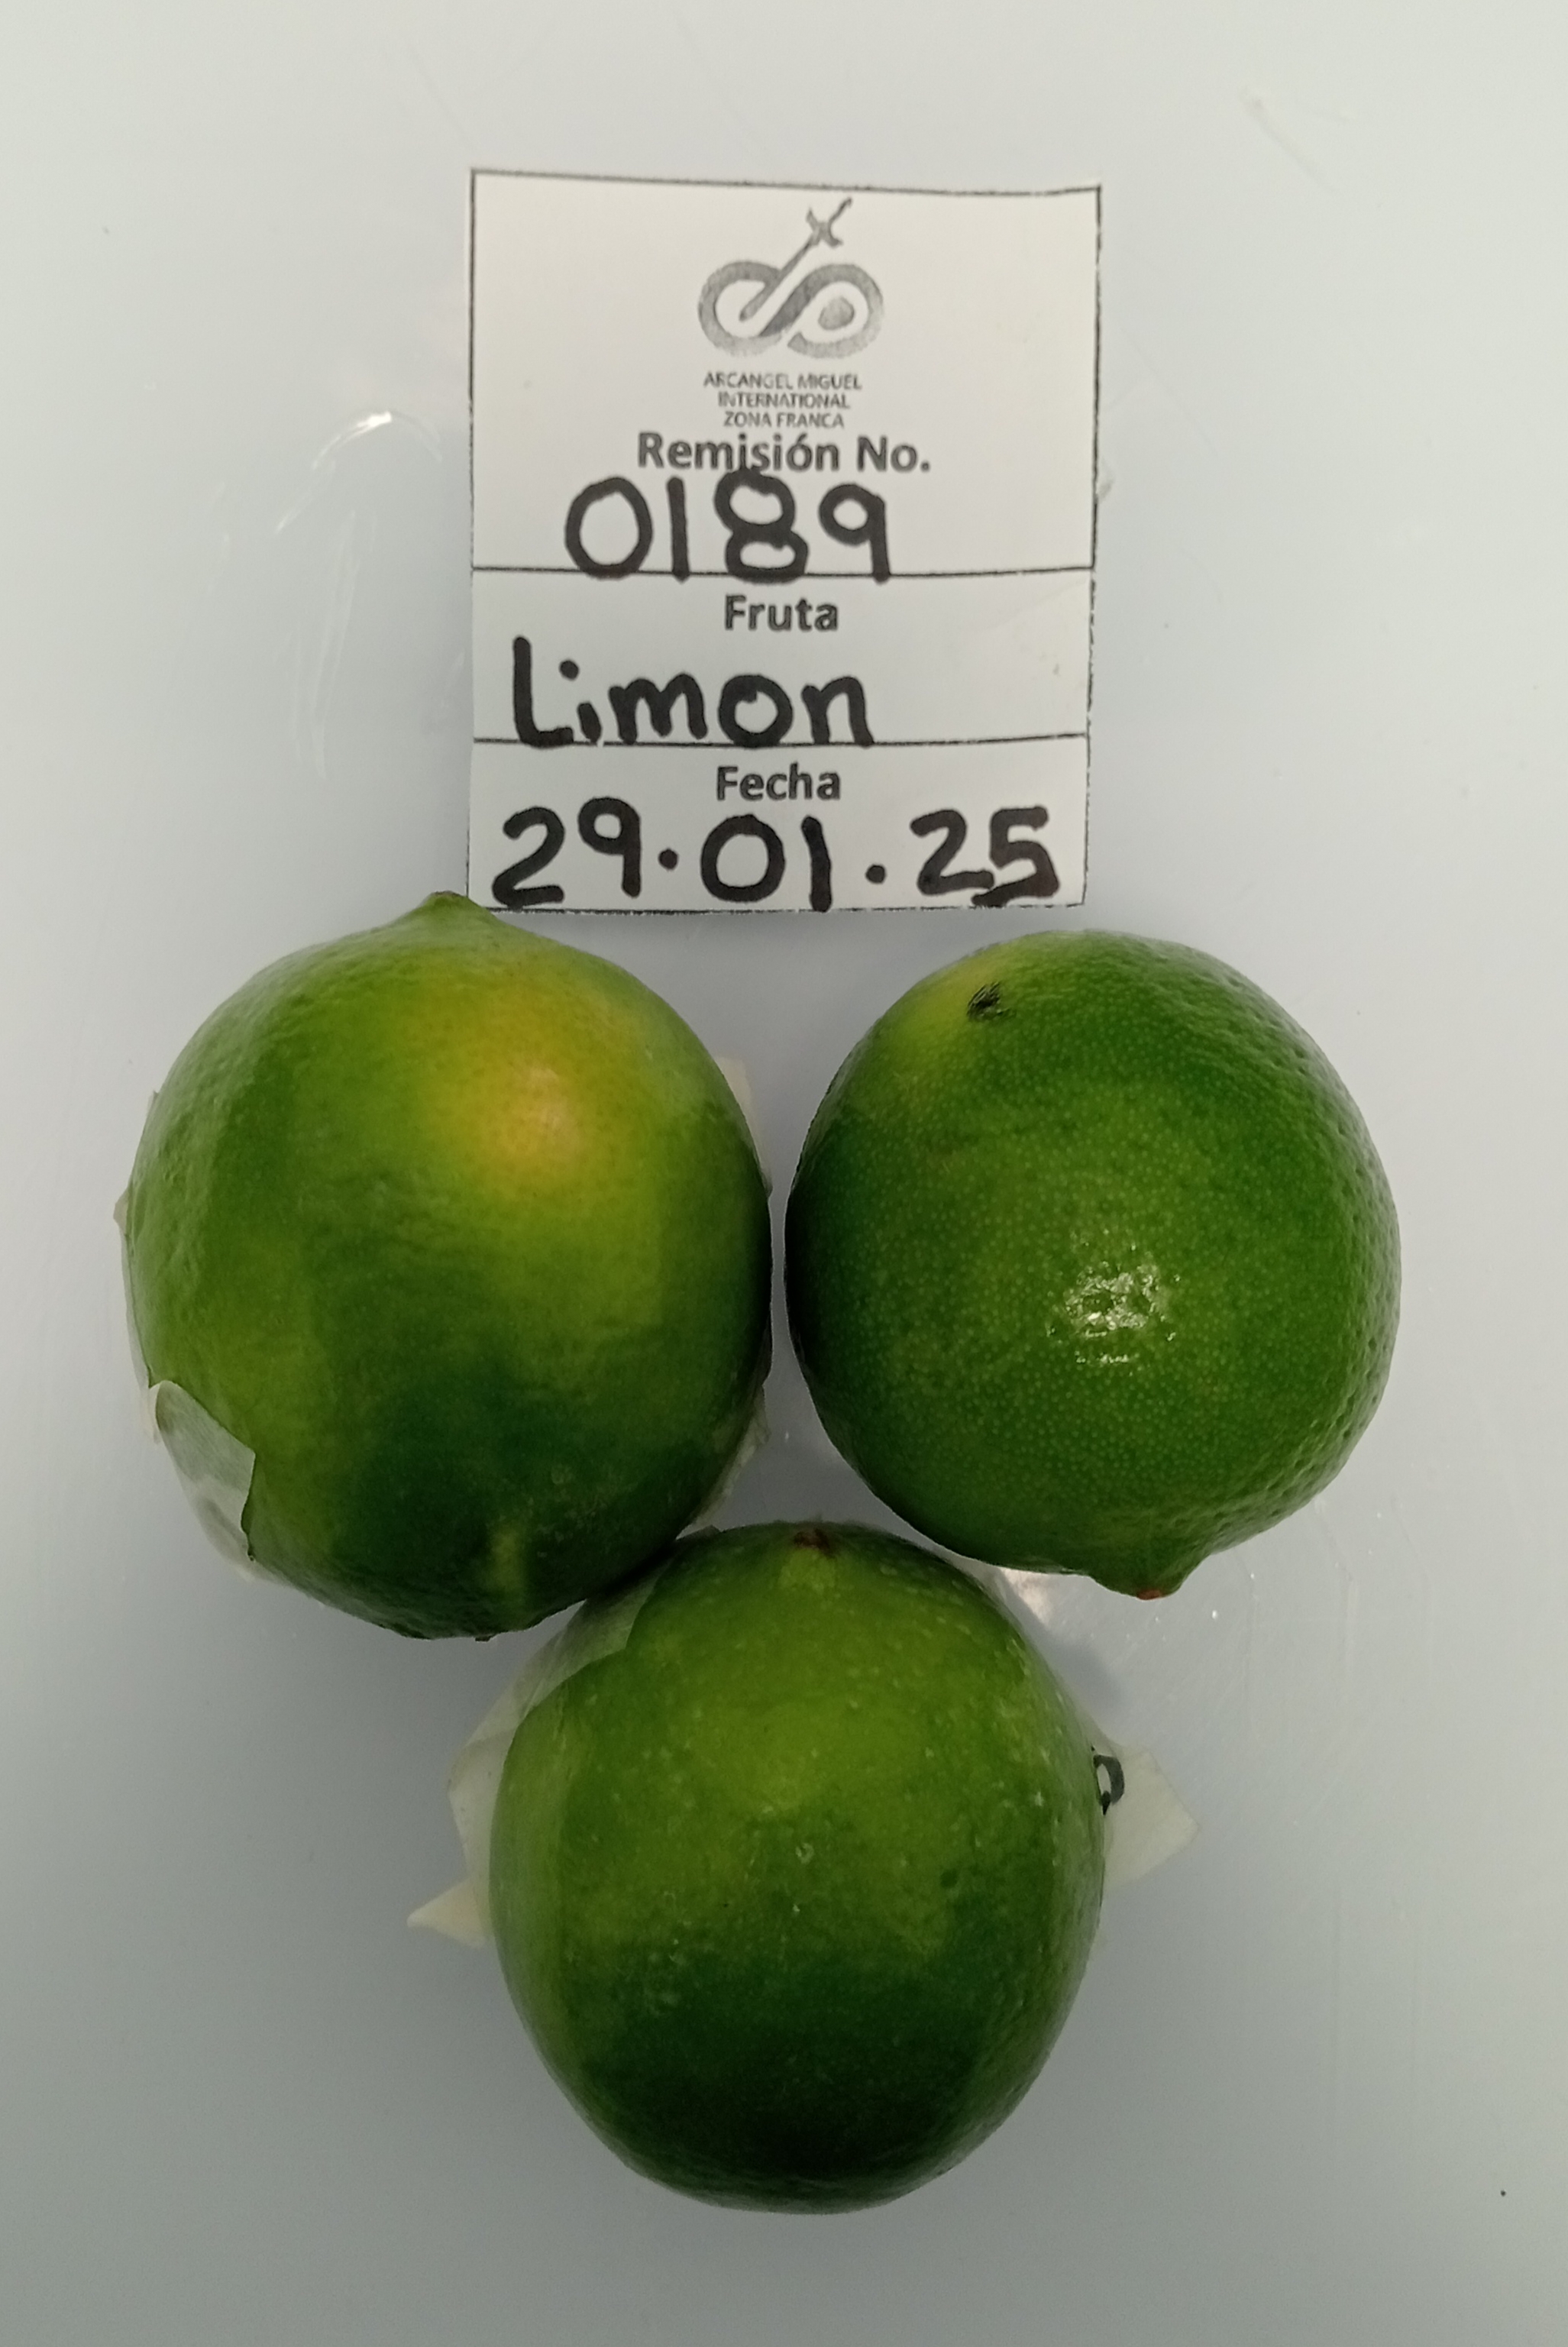 ARCANGEL MIGUEL
INTERNATIONAL
ZONA FRANCA
Remisión No.
0189
Fruta
Limon
Fecha
29.01.25